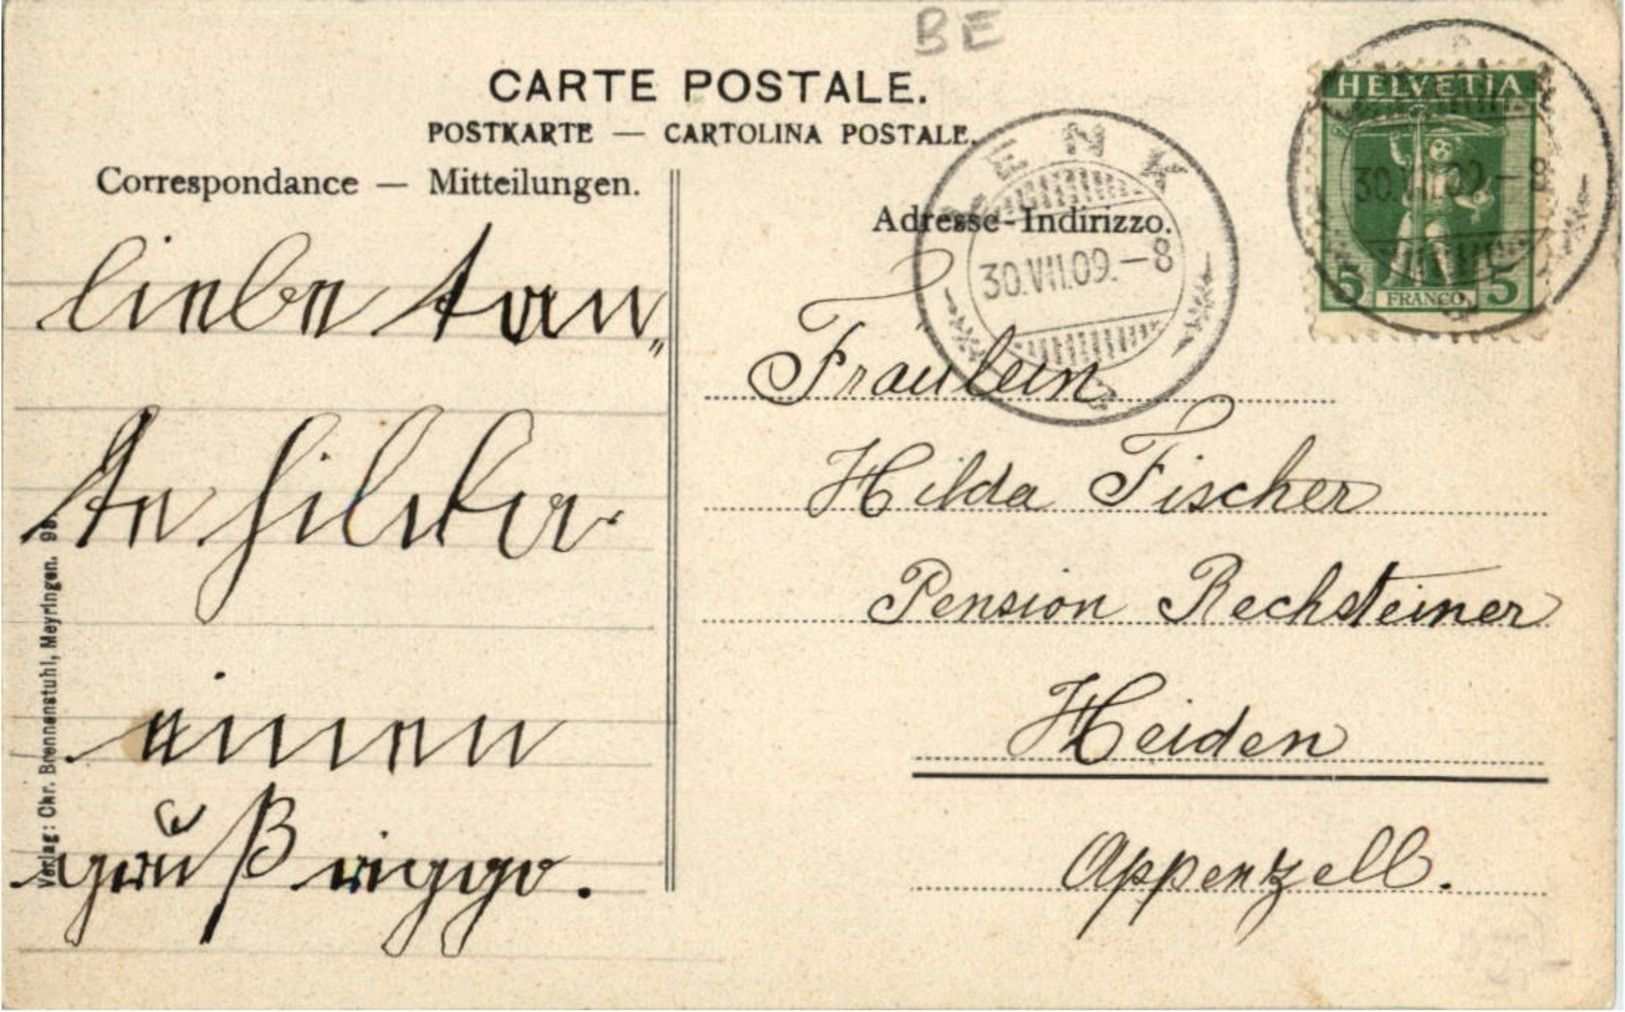 BE
CARTE POSTALE.
POSTKARTE — CARTOLINA POSTALE.
Correspondance — Mitteilungen.
Adresse-Indirizzo.
HELVETIA
5 FRANCO 5
30.VII.09.–8
LENK
30.VII.09.–8
liebe tan„
te hilda
einen
gruß riggo.
Fräulein
Hilda Fischer
Pension Rechsteiner
Heiden
Appenzell.
Verlag: Chr. Brennenstuhl, Meyringen.